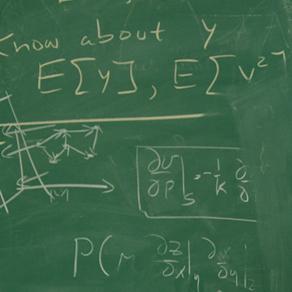 know about y
E[y], E[v²]
∂v/∂P|S = -1/k ∂/∂
P( ∂z/∂x|y ∂/∂y|z